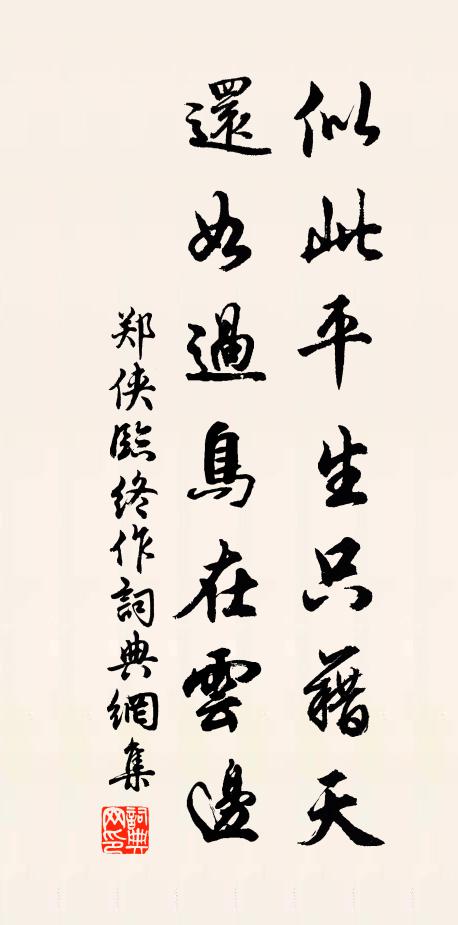 似此平生只藉天
還如過鳥在雲邊
郑侠臨终作詞典網集
詞典網印